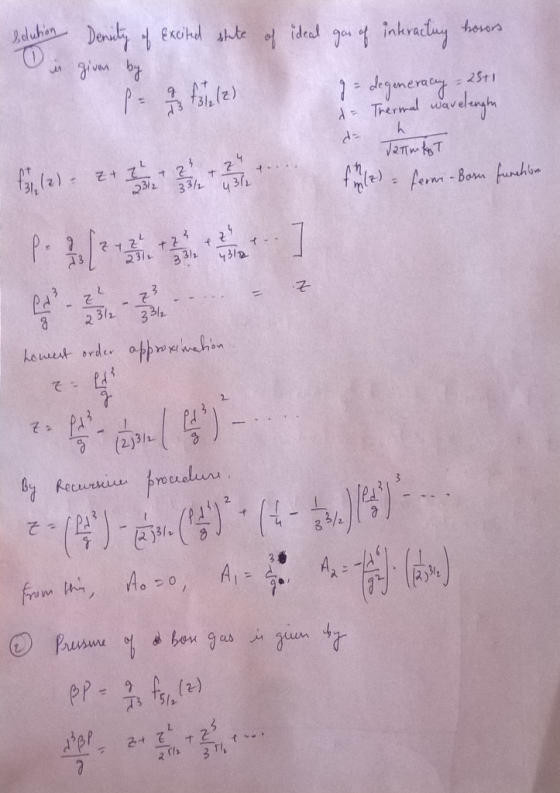 Solution Density of Excited state of ideal gas of interacting bosons
① is given by
ρ = g/λ³ f⁺3/2(z)
g = degeneracy = 2S+1
λ = Thermal wavelength
λ = h/√2πmkBT
f⁺3/2(z) = z + z²/2^3/2 + z³/3^3/2 + z⁴/4^3/2 + ....
fⁿm(z) = ferm-Bosn function
ρ = g/λ³ [z + z²/2^3/2 + z³/3^3/2 + z⁴/4^3/2 + ..]
ρλ³/g - z²/2^3/2 - z³/3^3/2 - ..... = z
Lowest order approximation
z = ρλ³/g
z = ρλ³/g - 1/(2)^3/2 (ρλ³/g)² - ....
By Recursive procedure.
z = (ρλ³/g) - 1/(2)^3/2 (ρλ³/g)² + (1/4 - 1/3^3/2)(ρλ³/g)³ - ....
from this, A₀ = 0, A₁ = λ³/g, A₂ = -(λ⁶/g²)·(1/(2)^3/2)
② Pressure of Bose gas is given by
βP = g/λ³ f5/2(z)
λ³βP/g = z + z²/2^5/2 + z³/3^5/2 + ...